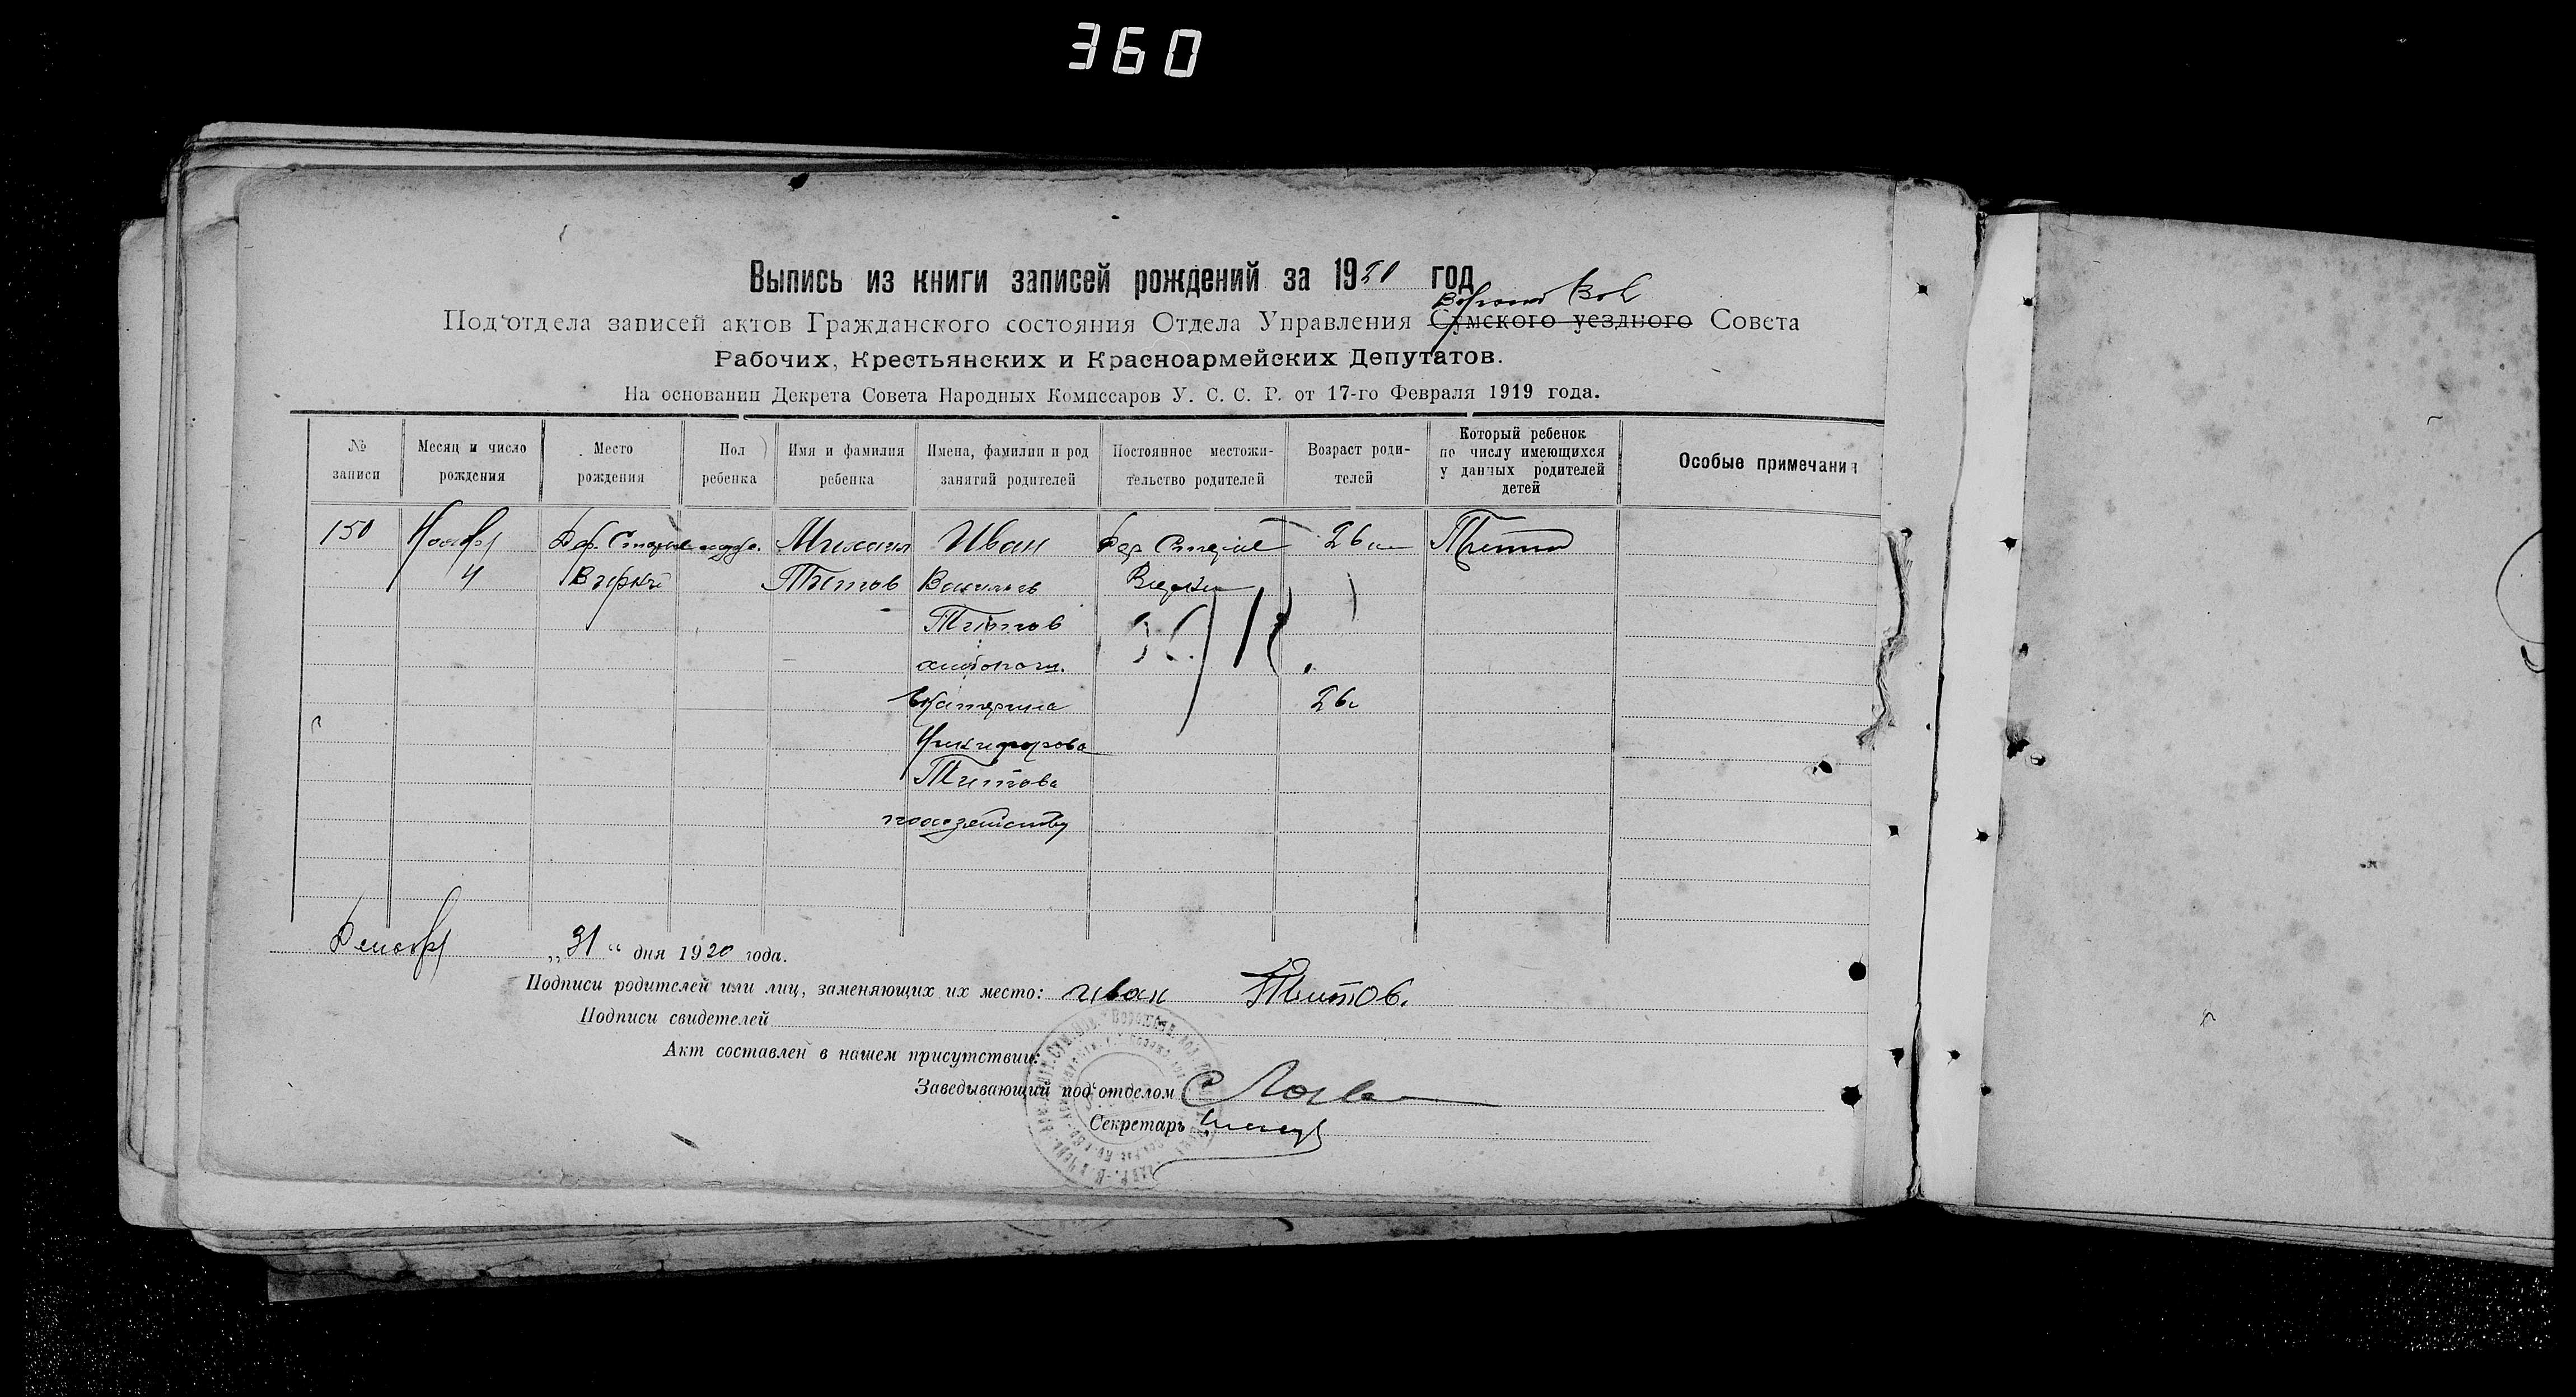 360
Выпись из книги записей рождений за 1920 год
Под'отдела записей актов Гражданского состояния Отдела Управления Сумского уездного Совета
Рабочих, Крестьянских и Красноармейских Депутатов.
На основании Декрета Совета Народных Комиссаров У. С. С. Р. от 17-го Февраля 1919 года.
№ записи
Месяц и число рождения
Место рождения
Пол ребенка
Имя и фамилия ребенка
Имена, фамилии и род занятий родителей
Постоянное местожительство родителей
Возраст родителей
Который ребенок по числу имеющихся у данных родителей детей
Особые примечания
150 Ноября Дер. Старые Михаил Иван Дер Старые 26
4 Вирки Титов Васильев Вирки
Титов
хлебопаш.
Екатерина 26
Никифорова
Титова
Декабря „31“ дня 1920 года.
Подписи родителей или лиц, заменяющих их место: Иван Титов.
Подписи свидетелей
Акт составлен в нашем присутствии:
Заведывающий под'отделом
Секретарь